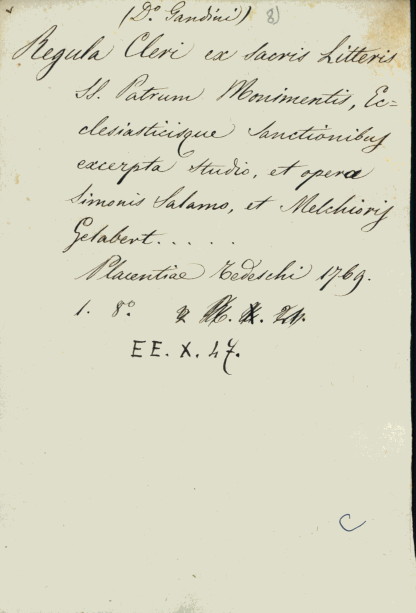 (D.º Gandini) 8)
Regula Cleri ex Sacris Litteris
SS. Patrum Monimentis, Ec=
clesiasticisque Sanctionibus
excerpta studio, et opera
Simonis Salamo, et Melchioris
Gelabert.....
Placentiae Tedeschi 1769.
1. 8.º
EE. X. 47.
C